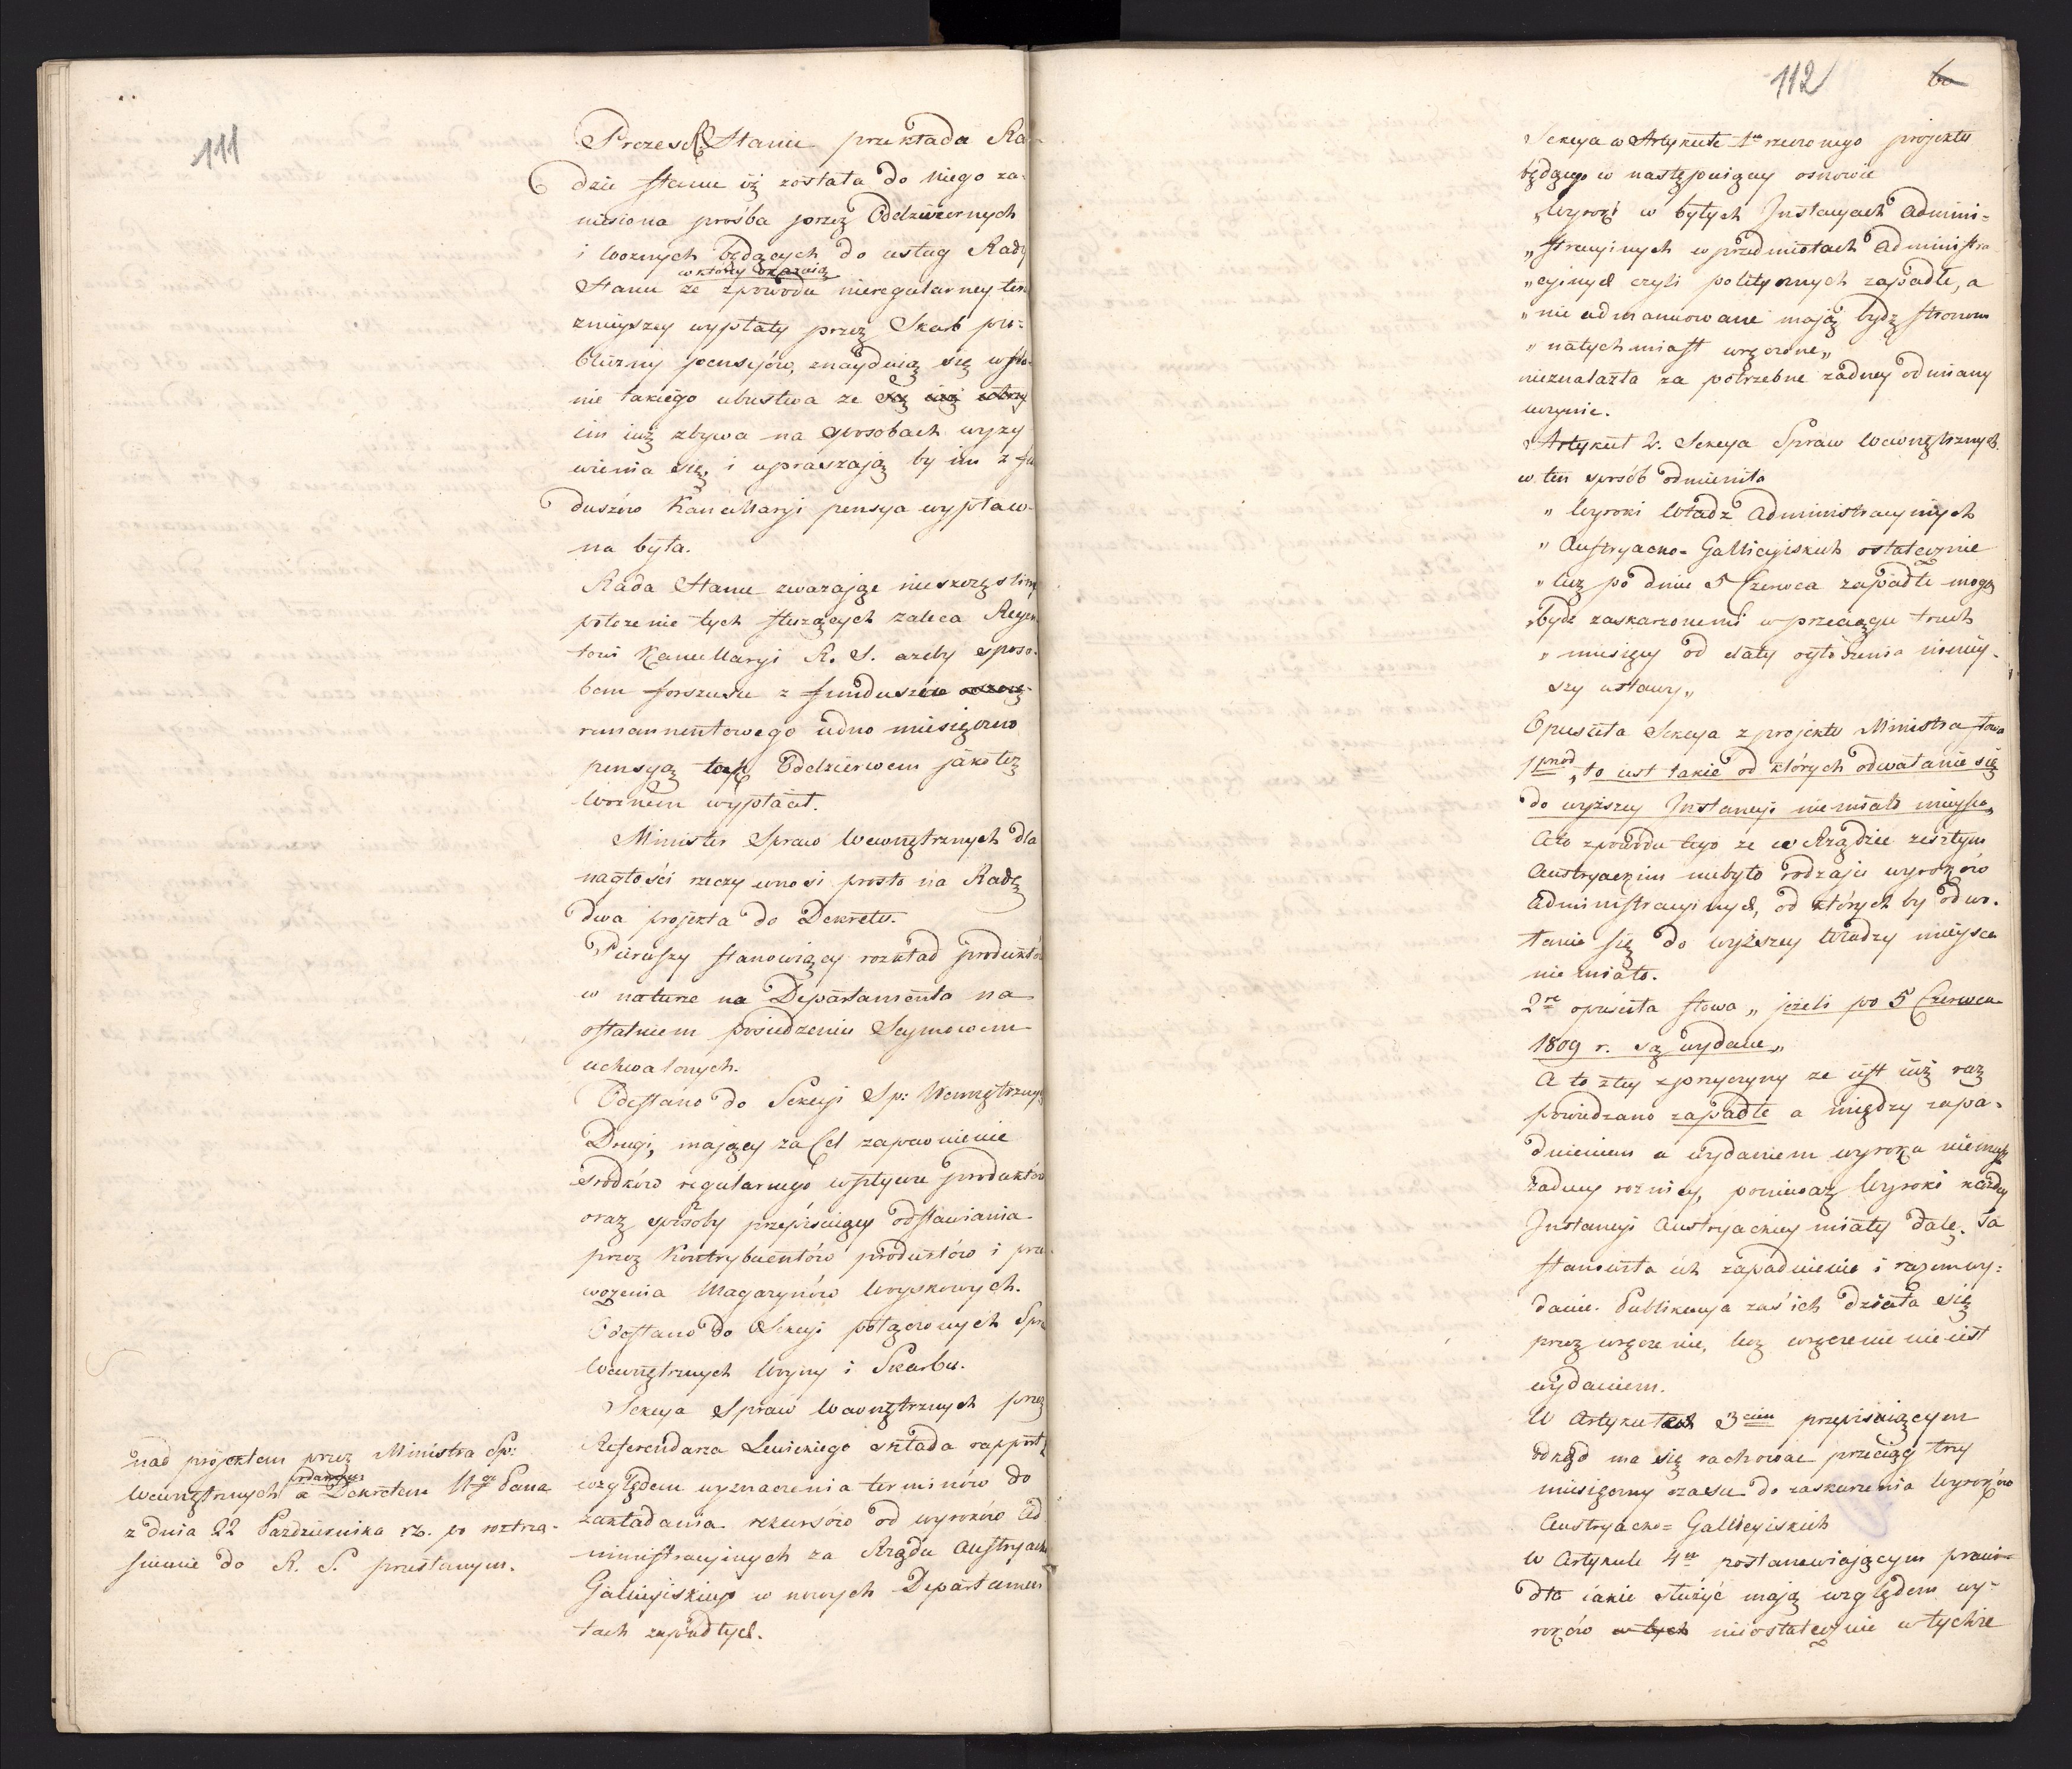 111
Prezes R Stanu przekłada Ra-
dzie Stanu iż została do niego za-
niesiona prośba przez Oddzwiernych
i woznych będących do usług Rady
w ktorey okazuią
Stanu że z powodu nieregularney ten
znieyszey wypłaty przez Skarb pu-
bliczny pensyów, znayduią się w sta-
nie takiego ubustwa ze są iuż
im iuż zbywa na sposobach wyży
wienia się, i upraszaią by im z fu
duszów Kancellaryi pensya wypław-
na była.
Rada Stanu zważaiąc nieszczęśliwe
położenie tych służących zaleca Regen
towi Kancellaryi R. S. azeby sposo-
bem forszusu z funduszów
remanentowego iedno miesięczno
pensyą tak Oddzierwcom jako też
Woznem wypłacił.
Minister Spraw Wewnętrznych dla
nagłości rzeczy wnosi prosto na Radę
dwa projekta do Dekretu.
Pierwszy stanowiący rozkład produktów
w naturze na Departamenta na
ostatniem posiedzeniu Seymowem
uchwalonych.
Odesłano do Sekcyi Sp: Wewnętrznych
Drugi, maiący za Cel zapewnienie
srodków regularnego wpływu produktów
oraz sposoby przepisuiący odstawiania
przez Kontrybuentów produktów i prze
wożenia Magazynów Woyskowych.
Odesłano do Sekcyi połączonych Spra
Wewnętrznych Woyny i Skarbu.
Sekcya Spraw Wewnętrznych przez
Referendarza Lewickiego składa rapport
względem wyznaczenia terminów do
zakładania rekursów od wyroków Ad
ministracyinych za Rządu Austryack
Galicyiskiego w nowych Departamen
tach zapadłych.
nad projektem przez Ministra Sp:
podanym
Wewnętrznych a Dekretem N go Pana
z dnia 22 Pazdziernika rb. po roztrzą-
śnienie do R. S. przesłanym.
112
60
Sekcya w Artykule 1m rzeczonego projektu
będącego w następuiący osnowie
„Wyroki w byłych Instancyach admini-
„stracyinych w przedmiotach administra
„cyinych czyli politycznych zapadłe, a
„nie admaniowane maią bydź stronom
„natychmiast wręczone„
nieznalazła za potrzebne żadney odmiany
uczynić.
Artykuł 2. Sekcya Spraw Wewnętrznych
w ten sposób odmieniła
„Wyroki Władz Administracyinych
„Austryacko-Gallicyiskich ostatecznie
„lecz po dniu 5 Czerwca zapadłe mogą
„bydź zaskarzonemi w przeciągu trzech
„miesięcy od daty ogłoszenia nieniey-
szy ustawy„
Opuściła Sekcya z projektu Ministra słowa
1mod „to iest takie od których odwałanie się
do wyższey Instancyi nie miało mieysca„
A to z powodu tego że w Rządzie zeszłym
Austryackim niebyło rodzaju wyroków
administracyinych, od których by odwo-
łanie się do wyższey Władzy mieysca
nie miało.
2re opuściła słowa „jeżeli po 5 Czerwca
1809 r. są wydane„
A to z tey zprzyczyny że iest iuż raz
powiedziano zapadłe a między zapa-
dnieniem a wydaniem wyroku niemasz
żadney roznicy, ponieważ Wyroki każdey
Instancyi Austryackiey miały datę. Ta
stanowiła ich zapadnienie i razem wy-
danie. Publikacya zaś ich działa się
przez wręczenie, lecz wręczenie nie iest
wydaniem.
W Artykule 3cim przepisuiącym
odkąd ma się rachować przeciąg trzy
miesięczny czasu do zaskarzenia Wyroków
Austryacko-Gallicyiskich
W Artykule 4m postanawiaiącym prawi-
dło iakie służyć maią względem wy-
roków w tych nieostatecznie w tychże